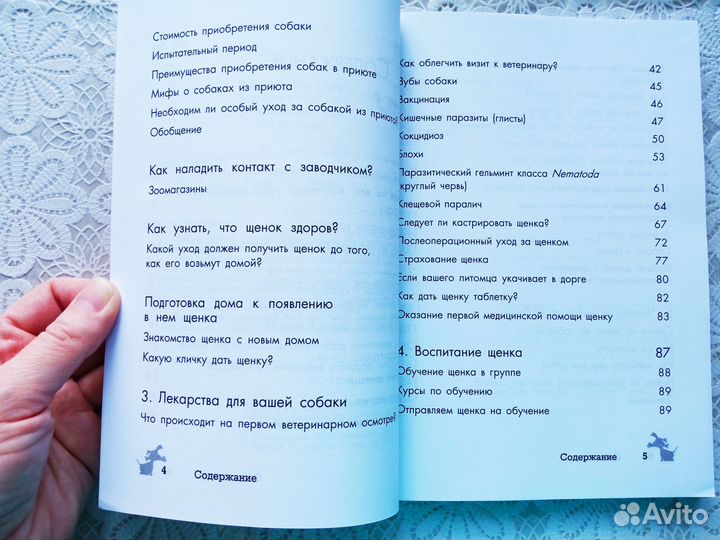 Стоимость приобретения собаки
Испытательный период
Преимущества приобретения собак в приюте
Мифы о собаках из приюта
Необходим ли особый уход за собакой из приюта?
Обобщение
Как наладить контакт с заводчиком?
Зоомагазины
Как узнать, что щенок здоров?
Какой уход должен получить щенок до того,
как его возьмут домой?
Подготовка дома к появлению
в нем щенка
Знакомство щенка с новым домом
Какую кличку дать щенку?
3. Лекарства для вашей собаки
Что происходит на первом ветеринарном осмотре?
4 Содержание
Как облегчить визит к ветеринару? 42
Зубы собаки 45
Вакцинация 46
Кишечные паразиты (глисты) 47
Кокцидиоз 50
Блохи 53
Паразитический гельминт класса Nematoda
(круглый червь) 61
Клещевой паралич 64
Следует ли кастрировать щенка? 67
Послеоперационный уход за щенком 72
Страхование щенка 77
Если вашего питомца укачивает в дорге 80
Как дать щенку таблетку? 82
Оказание первой медицинской помощи щенку 83
4. Воспитание щенка 87
Обучение щенка в группе 88
Курсы по обучению 89
Отправляем щенка на обучение 89
Содержание 5
Avito